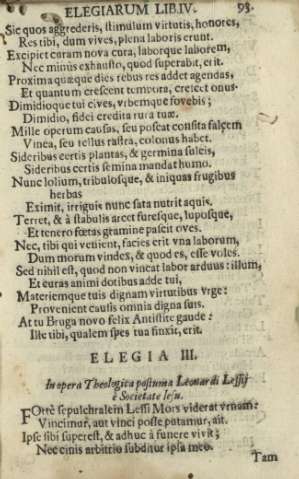 ELEGIARUM LIB.IV. 93.
Sic quos aggrederis, stimulum virtutis, honores,
Res tibi, dum vives, plena laboris erunt.
Excipiet curam nova cura, laborque laborem,
Nec minus exhausto, quod superabit, erit.
Proxima quæque dies rebus res addet agendas,
Et quantum crescent tempora, crescet onus.
Dimidioque tui cives, vrbemque fovebis;
Dimidio, fidei credita rura tuæ.
Mille operum causas, seu poscat consita falcem
Vinea, seu tellus rastra, colonus habet.
Sideribus certis plantas, & germina sulcis,
Sideribus certis semina mandat humo.
Nunc lolium, tribulosque, & iniquas frugibus
herbas
Eximit, irriguis nunc sata nutrit aquis.
Terret, & à stabulis arcet furesque, luposque,
Et tenero fœtas gramine pascit oves.
Nec, tibi qui venient, facies erit vna laborum,
Dum morum vindex, & quod es, esse voles.
Sed nihil est, quod non vincat labor arduus: illum,
Et curas animi dotibus adde tui,
Materiemque tuis dignam virtutibus vrge:
Provenient causis omnia digna suis.
At tu Bruga novo felix Antistite gaude:
Ille tibi, qualem spes tua finxit, erit.
ELEGIA III.
In opera Theologica postuma Leonardi Lessij
è Societate Iesu.
FOrtè sepulchralem Lessi Mors viderat vrnam:
Vincimur, aut vinci posse putamur, ait.
Ipse sibi superest, & adhuc à funere vivit;
Nec cinis arbitrio subditur ipsa meo.
Tam